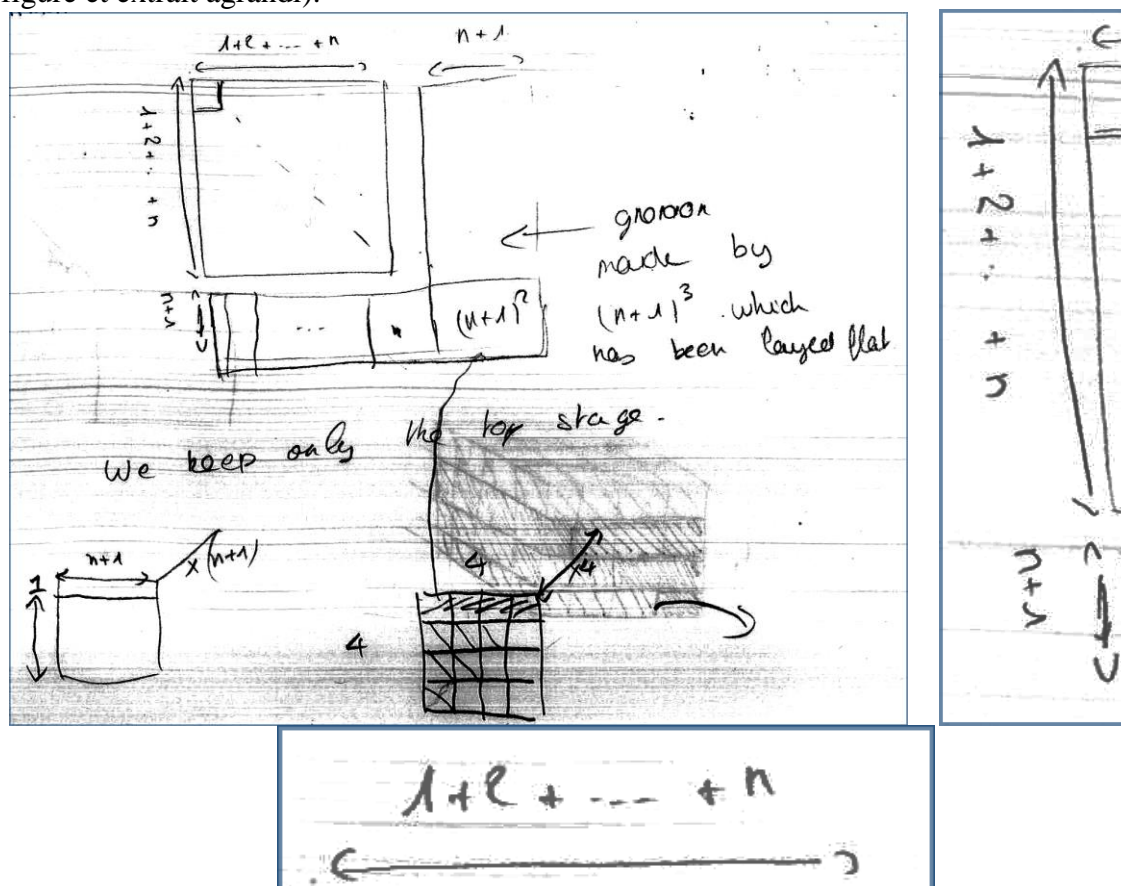 figure et extrait agrandi).
1+2+....+n
n+1
1+2+..+n
gnomon
made by
(n+1)³ which
has been layed flat
n+1
...
n
(n+1)²
We keep only the top stage.
n+1
x(n+1)
1
4
x4
4
1+2+..+n
n+1
1+2+....+n